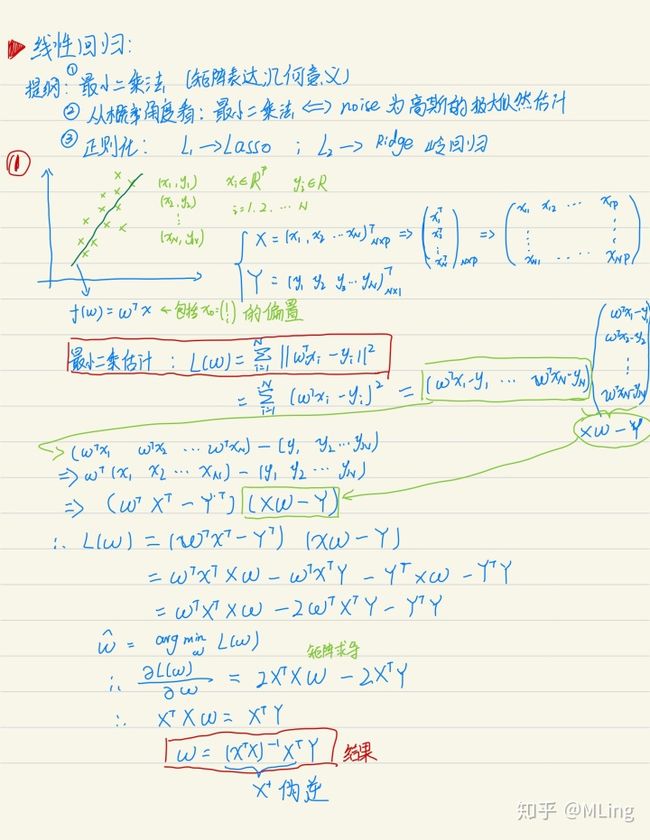 线性回归:
提纲: ① 最小二乘法 (矩阵表达,几何意义)
② 从概率角度看: 最小二乘法 <=> noise 为高斯的极大似然估计
③ 正则化: L₁ → Lasso ; L₂ → Ridge 岭回归
①
(x₁, y₁) xᵢ∈ℝᵖ yᵢ∈ℝ
(x₂, y₂) i=1. 2. ⋯ N
⋮
(x_N, y_N)
{ X = (x₁, x₂ ⋯ x_N)ᵀ_{N×P} => (x₁ᵀ x₂ᵀ ⋮ x_Nᵀ)_{N×P} => (x₁₁ x₁₂ ⋯ x₁ₚ ⋮ ⋮ x_{N1} ⋯ x_{NP})
Y = (y₁ y₂ y₃ ⋯ y_N)ᵀ_{N×1}
f(w) = wᵀx ← 包括 x₀=(1⋮1) 的偏置
最小二乘估计 : L(w) = Σ_{i=1}^{N} ||wᵀxᵢ - yᵢ||²
= Σ_{i=1}^{N} (wᵀxᵢ - yᵢ)² = (wᵀx₁-y₁ ⋯ wᵀx_N-y_N) (wᵀx₁-y₁ wᵀx₂-y₂ ⋮ wᵀx_N-y_N)
XW - Y
(wᵀx₁ wᵀx₂ ⋯ wᵀx_N) - (y₁ y₂ ⋯ y_N)
=> wᵀ(x₁ x₂ ⋯ x_N) - (y₁ y₂ ⋯ y_N)
=> (wᵀXᵀ - Yᵀ) (XW - Y)
∴ L(w) = (wᵀXᵀ - Yᵀ) (XW - Y)
= wᵀXᵀXW - wᵀXᵀY - YᵀXW - YᵀY
= wᵀXᵀXW - 2wᵀXᵀY - YᵀY
ŵ = argmin_w L(w)
矩阵求导
∴ ∂L(w)/∂w = 2XᵀXW - 2XᵀY
∴ XᵀXW = XᵀY
w = (XᵀX)⁻¹XᵀY 结果
X⁺ 伪逆
知乎 @MLing